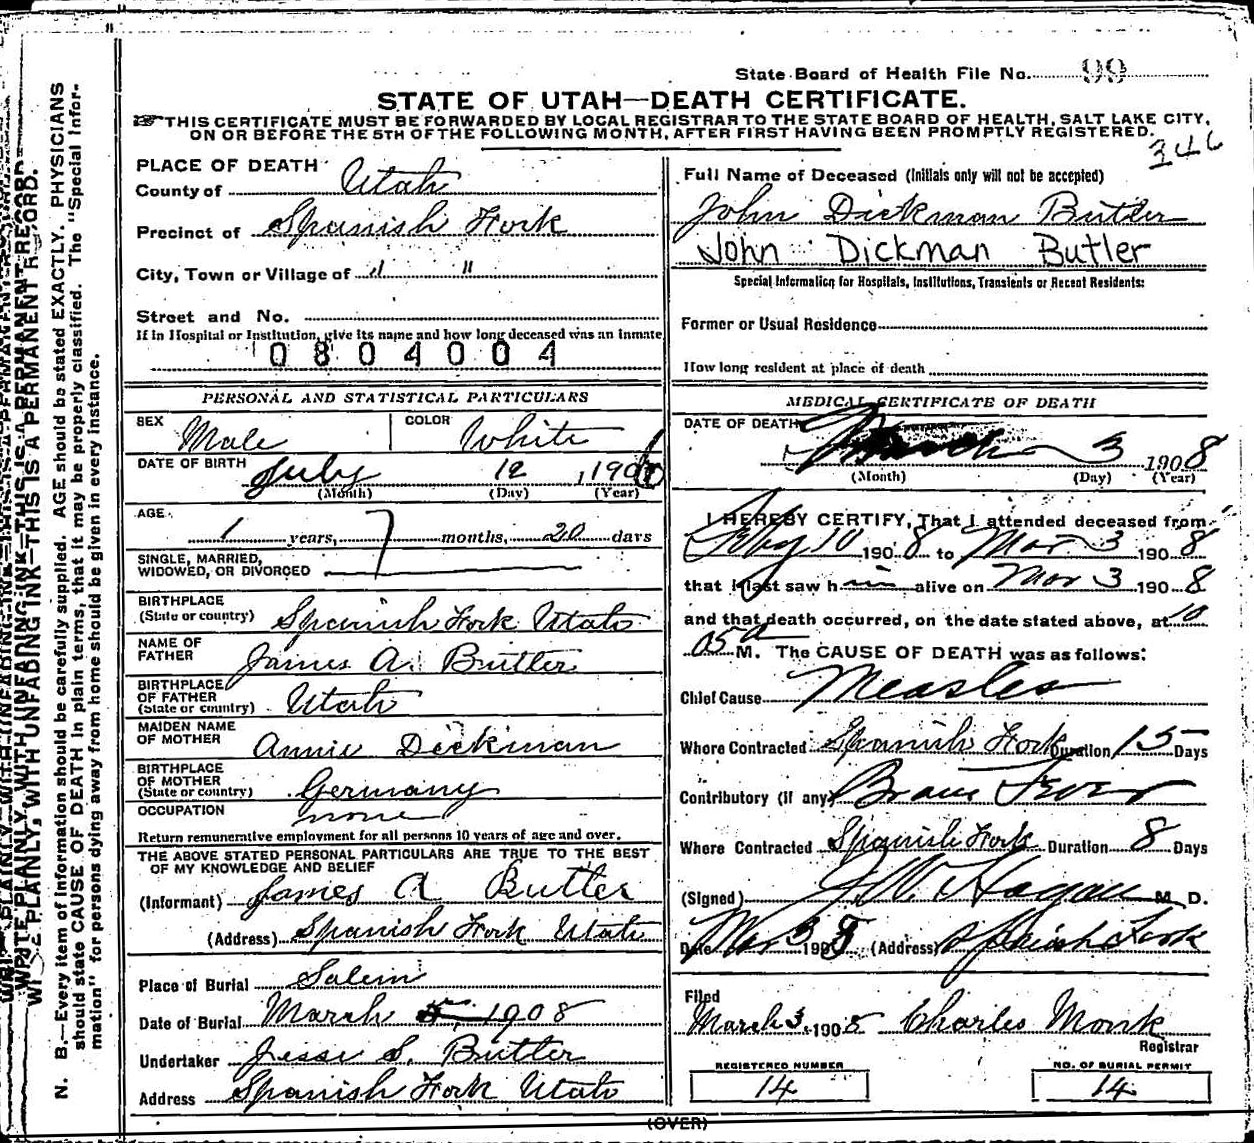 State Board of Health File No. 99
STATE OF UTAH—DEATH CERTIFICATE.
THIS CERTIFICATE MUST BE FORWARDED BY LOCAL REGISTRAR TO THE STATE BOARD OF HEALTH, SALT LAKE CITY,
ON OR BEFORE THE 5TH OF THE FOLLOWING MONTH, AFTER FIRST HAVING BEEN PROMPTLY REGISTERED.
346
PLACE OF DEATH
County of Utah
Precinct of Spanish Fork
City, Town or Village of " "
Street and No.
If in Hospital or Institution, give its name and how long deceased was an inmate
0804004
PERSONAL AND STATISTICAL PARTICULARS
SEX Male COLOR White
DATE OF BIRTH July 12, 190
(Month) (Day) (Year)
AGE 1 years, 7 months, 20 days
SINGLE, MARRIED,
WIDOWED, OR DIVORCED
BIRTHPLACE
(State or country) Spanish Fork Utah
NAME OF
FATHER James A. Butler
BIRTHPLACE
OF FATHER
(State or country) Utah
MAIDEN NAME
OF MOTHER Annie Dickman
BIRTHPLACE
OF MOTHER
(State or country) Germany
OCCUPATION none
Return remunerative employment for all persons 10 years of age and over.
THE ABOVE STATED PERSONAL PARTICULARS ARE TRUE TO THE BEST
OF MY KNOWLEDGE AND BELIEF
(Informant) James A Butler
(Address) Spanish Fork Utah
Place of Burial Salem
Date of Burial March 5, 1908
Undertaker Jesse S. Butler
Address Spanish Fork Utah
Full Name of Deceased (Initials only will not be accepted)
John Dickman Butler
John Dickman Butler
Special Information for Hospitals, Institutions, Transients or Recent Residents:
Former or Usual Residence
How long resident at place of death
MEDICAL CERTIFICATE OF DEATH
DATE OF DEATH
March 3 1908
(Month) (Day) (Year)
I HEREBY CERTIFY, That I attended deceased from
Feby 10 1908 to Mar 3 1908
that I last saw him alive on Mar 3 1908
and that death occurred, on the date stated above, at 10
05 a M. The CAUSE OF DEATH was as follows:
Chief Cause Measles
Where Contracted Spanish Fork Duration 15 Days
Contributory (if any) Brain Fever
Where Contracted Spanish Fork Duration 8 Days
(Signed) J. W. Hagan M. D.
Date Mar 3 1908 (Address) Spanish Fork
Filed
March 3, 1908 Charles Monk
Registrar
REGISTERED NUMBER
14
NO. OF BURIAL PERMIT
14
(OVER)
WRITE PLAINLY, WITH UNFADING INK—THIS IS A PERMANENT RECORD.
N. B.—Every item of information should be carefully supplied. AGE should be stated EXACTLY. PHYSICIANS
should state CAUSE OF DEATH in plain terms, that it may be properly classified. The "Special Infor-
mation" for persons dying away from home should be given in every instance.